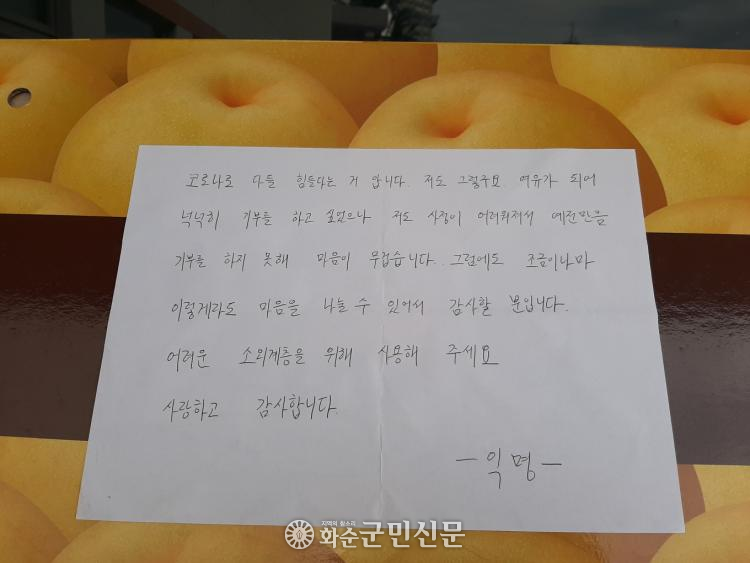 코로나로 다들 힘들다는 거 압니다. 저도 그렇구요. 여유가 되어
넉넉히 기부를 하고 싶었으나 저도 사정이 어려워져서 예전만큼
기부를 하지 못해 마음이 무겁습니다. 그럼에도 조금이나마
이렇게라도 마음을 나눌 수 있어서 감사할 뿐입니다.
어려운 소외계층을 위해 사용해 주세요
사랑하고 감사합니다.
- 익명 -
지역의 참소리
화순군민신문